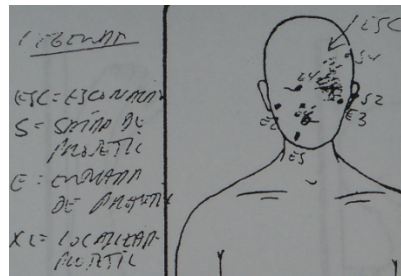 LEGENDA
ESC = ESCORIAÇÃO
S = SAÍDA DE
PROJETIL
E = ENTRADA
DE PROJETIL
XL = LOCALIZAR
PROJETIL
ESC
S4
E4
S2
E3
E2
E5